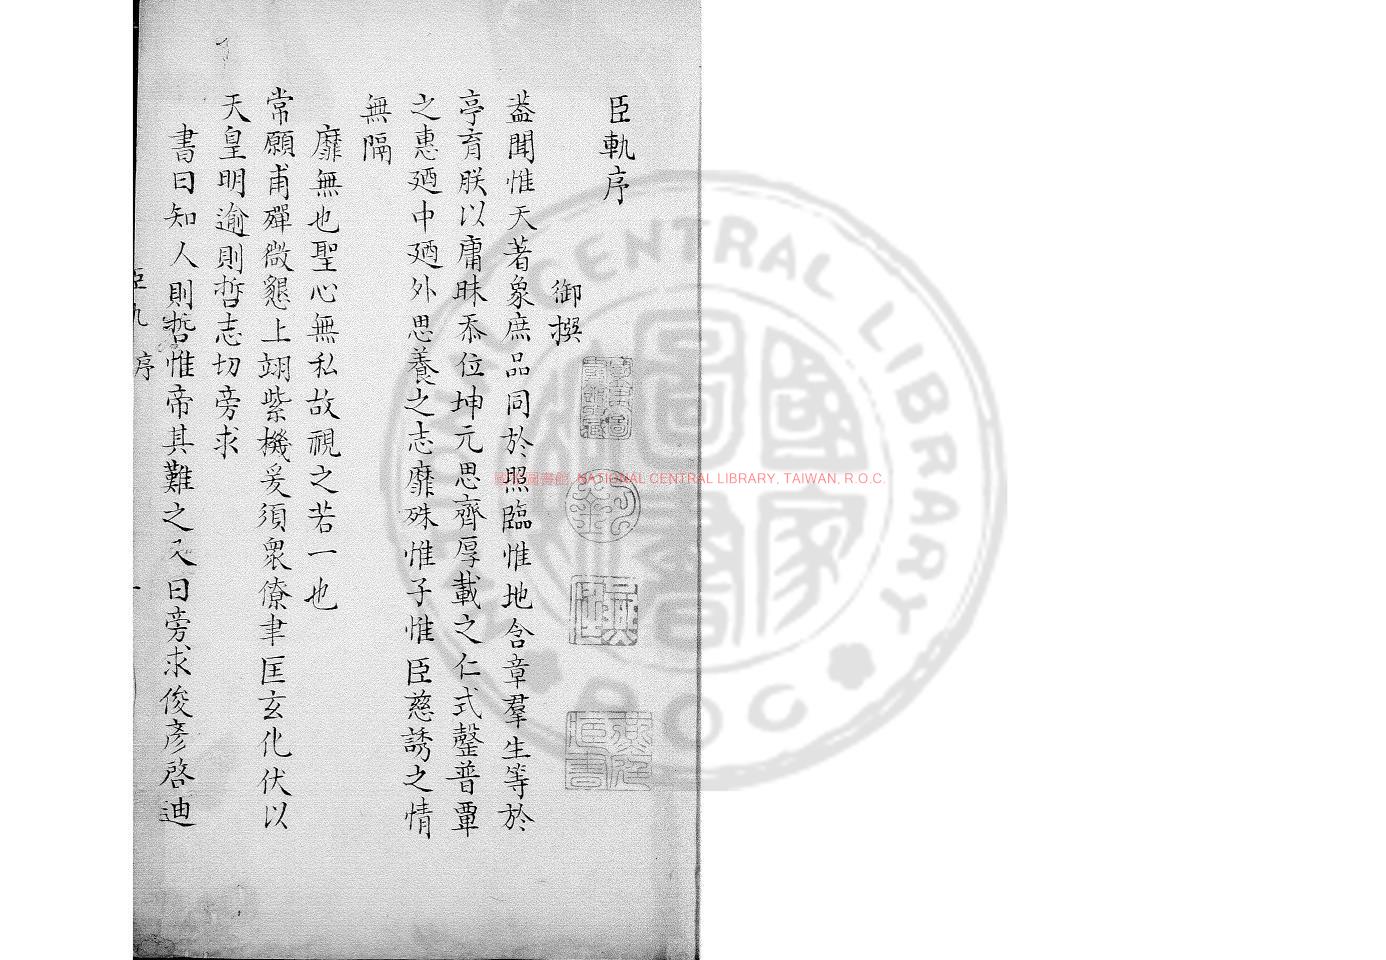 臣軌序
御撰
葢聞惟天著象庶品同於照臨惟地含章羣生等於
亭育朕以庸昧忝位坤元思齊厚載之仁式罄普覃
之惠廼中廼外思養之志靡殊惟子惟臣慈誘之情
無隔
靡無也聖心無私故視之若一也
常願甫殫微懇上翊紫機爰須衆僚聿匡玄化伏以
天皇明逾則哲志切旁求
書曰知人則哲惟帝其難之又曰旁求俊彥啓迪
序
國家圖書館, NATIONAL CENTRAL LIBRARY, TAIWAN, R.O.C.
NATIONAL CENTRAL LIBRARY
國家圖書
R.O.C